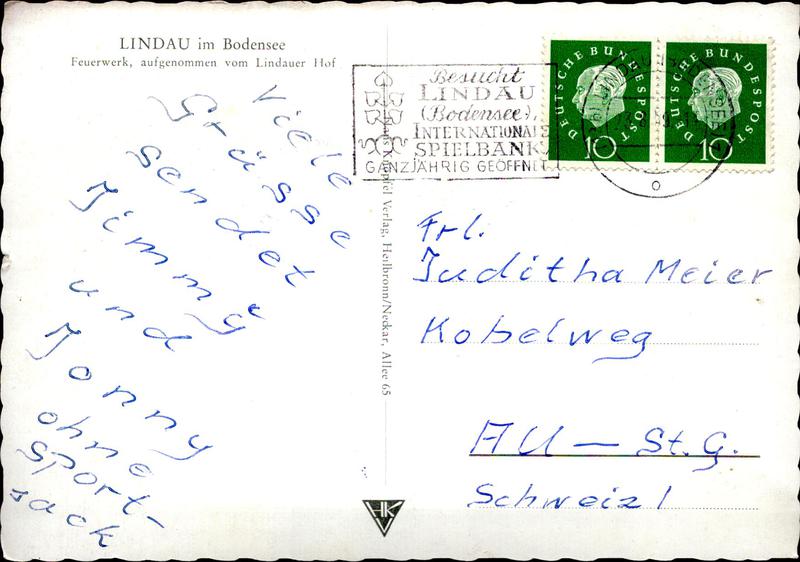 LINDAU im Bodensee
Feuerwerk, aufgenommen vom Lindauer Hof
Viele
Grüsse
sendet
Jimmy
und
Jonny
ohne
Sport-
sack
Verlag, Heilbronn/Neckar, Allee 65
HK
Besucht
LINDAU
(Bodensee),
INTERNATIONALE
SPIELBANK
GANZJÄHRIG GEÖFFNET
DEUTSCHE BUNDESPOST
10
DEUTSCHE BUNDESPOST
10
LINDAU
Frl.
Juditha Meier
Kobelweg
AU – St.G.
Schweiz!